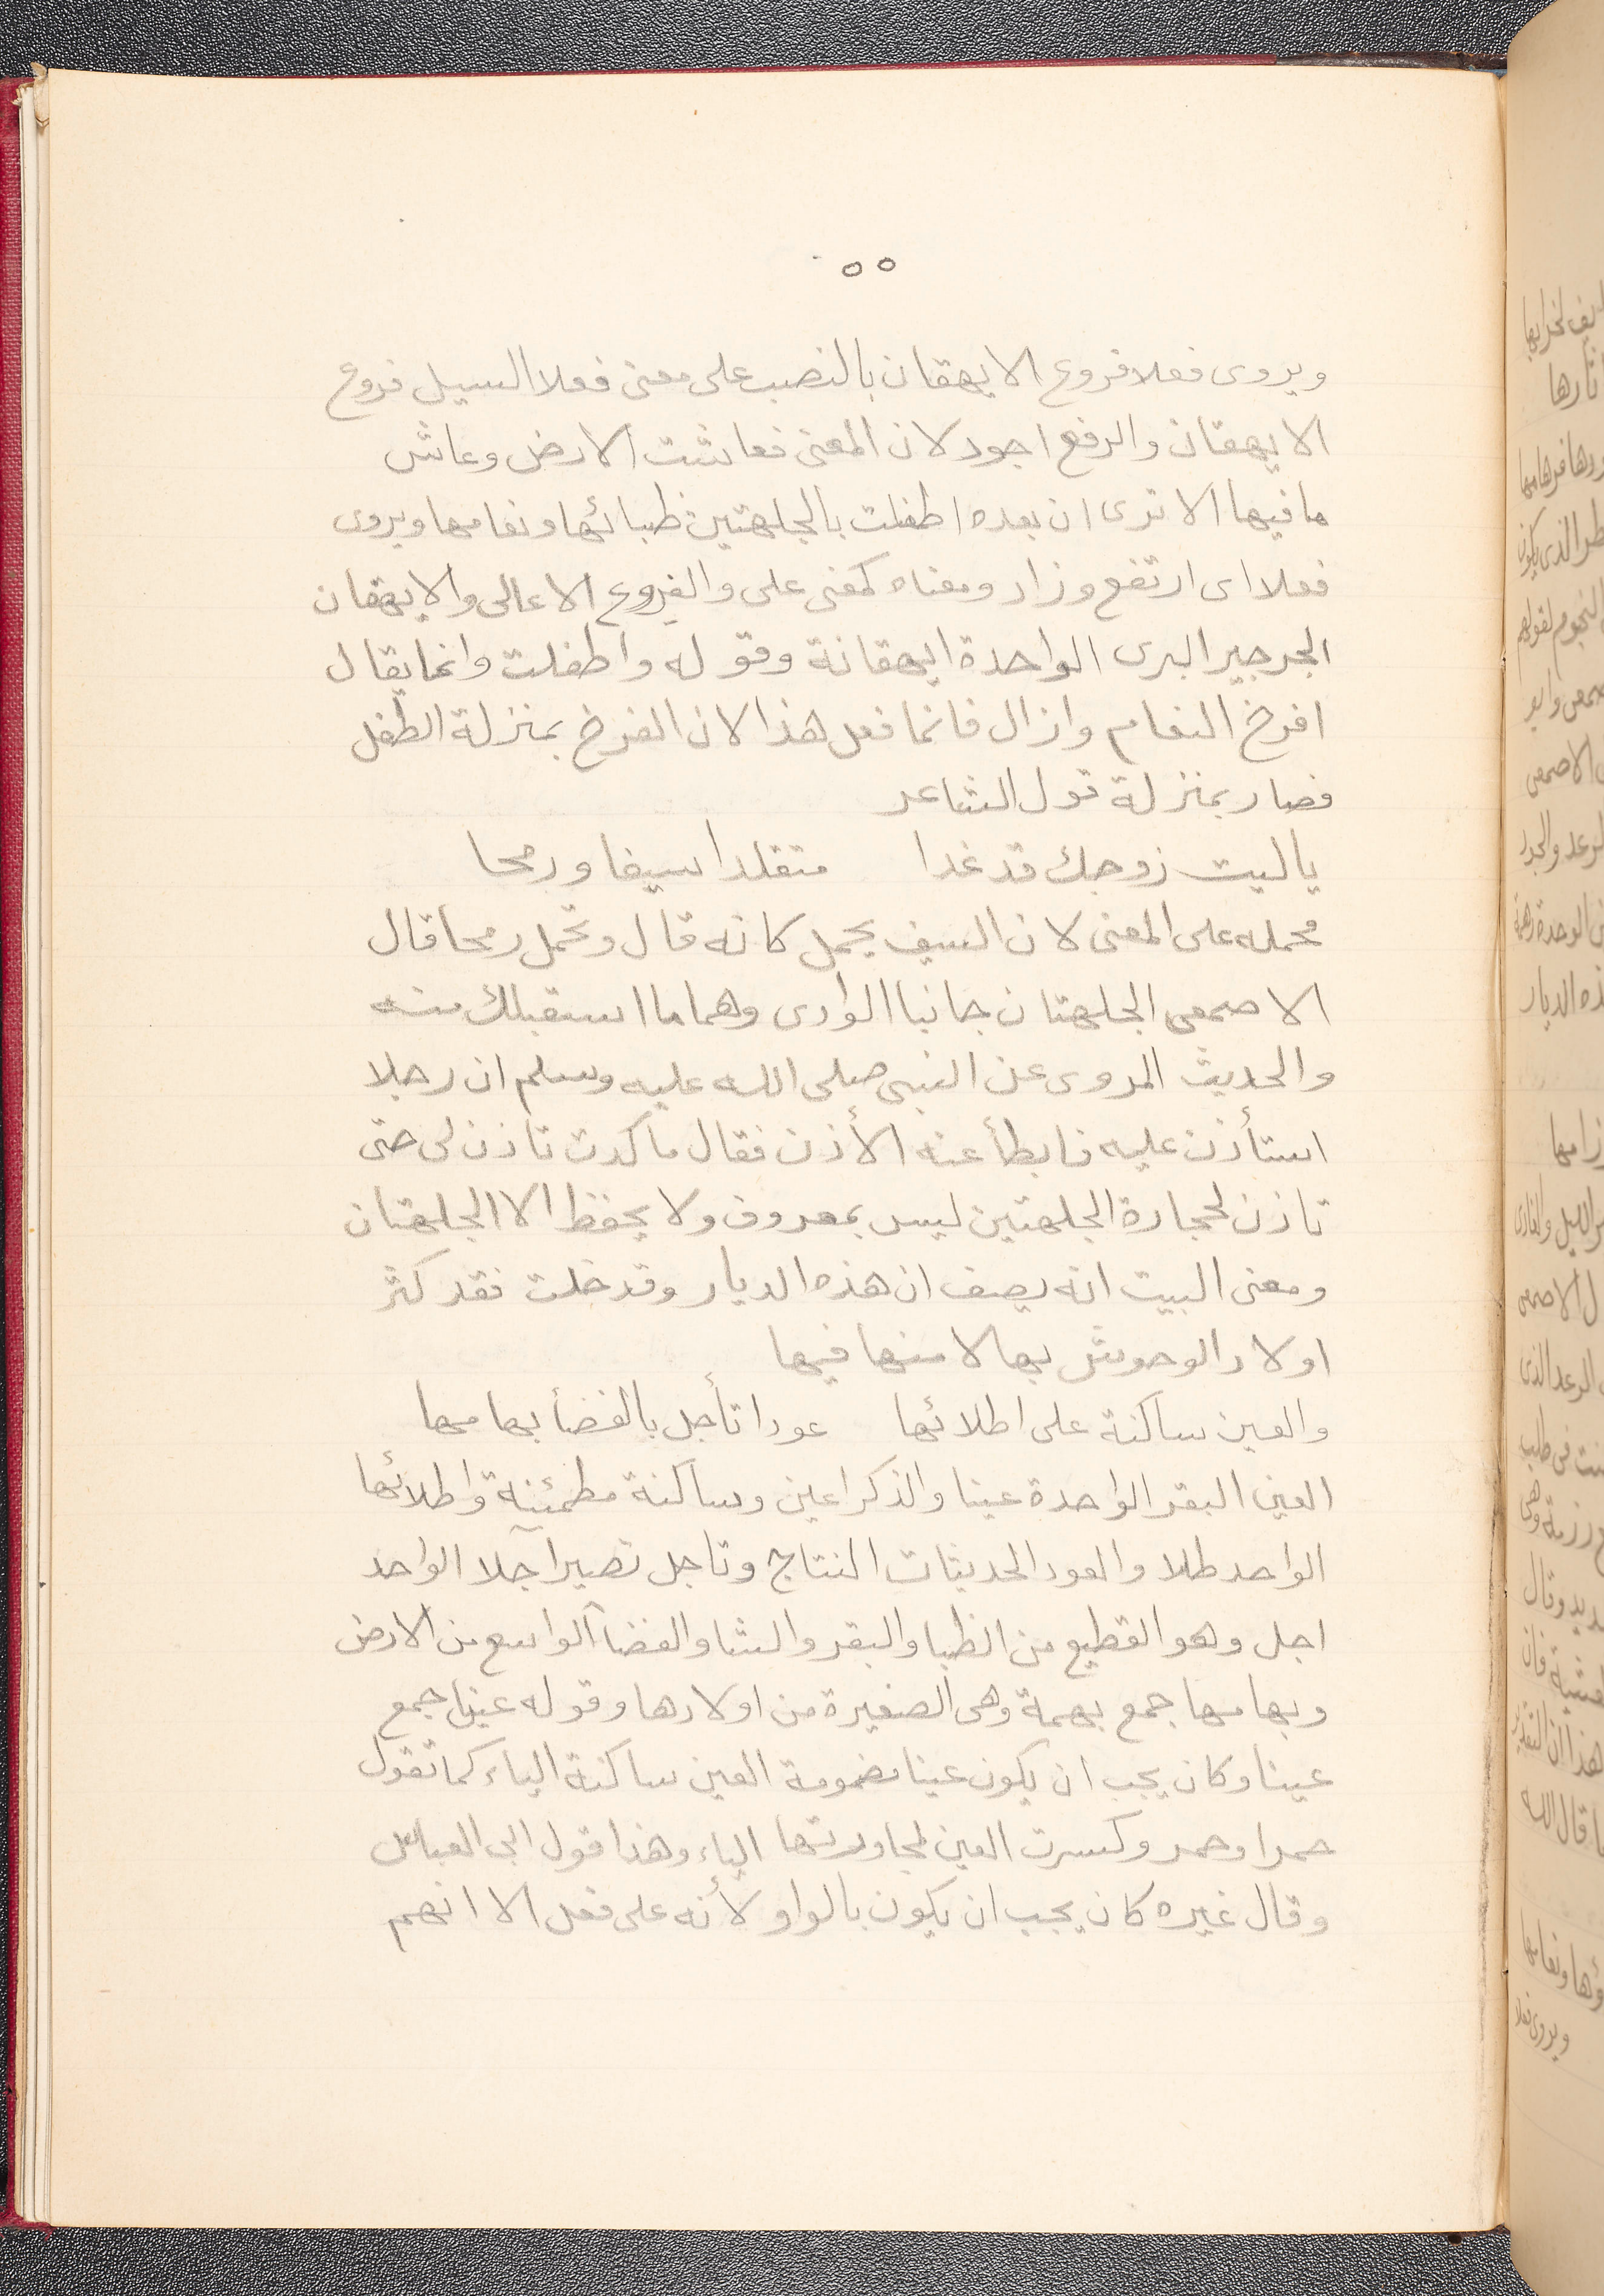 ٥٥
ويروى فعلا فروع الايهقان بالنصب على معنى فعلا السيل فروع
الايهقان والرفع اجود لان المعنى فعاشت الارض وعاش
ما فيها الا ترى ان بعده اطفلت بالجلهتين ظبائها ونعامها ويروى
فعلا اى ارتفع وزاد ومعناه كمعنى على والفروع الاعالى والايهقان
الجرجير البرى الواحدة ايهقانة وقوله واطفلت وانما يقال
افرخ النعام وازال فانما فعل هذا لان الفرخ بمنزلة الطفل
فصار بمنزلة قول الشاعر
يا ليت زوجك قد غدا متقلدا سيفا ورمحا
محمله على المعنى لان السيف يحمل كانه قال وتحمل رمحا قال
الاصمعى الجلهتان جانبا الوادى وهما ما استقبلك منه
والحديث المروى عن النبى صلى الله عليه وسلم ان رجلا
استأذن عليه فابطأ عنه الأذن فقال ما كدت تاذن لى حتى
تاذن لحجارة الجلهتين ليس بمعروف ولا يحفظ الا الجلهتان
ومعنى البيت انه يصف ان هذه الديار وقد خلت فقد كثر
اولاد الوحوش بها لامنها فيها
والعين ساكنة على اطلائها عودا تأجل بالفضأ بهامها
العين البقر الواحدة عينا والذكر اعين وساكنة مطمئنة واطلائها
الواحد طلا والعود الحديثات النتاج وتاجل تصير آجلا الواحد
اجل وهو القطيع من الظبا والبقر والشا والفضآ الواسع من الارض
وبهامها جمع بهمة وهى الصغيرة من اولادها وقوله عين جمع
عينا وكان يجب ان يكون عينا مضمومة العين ساكنة الياء كما تقول
حمرا وحمر وكسرت العين لمجاورتها الياء وهذا قول ابى العباس
وقال غيره كان يجب ان يكون بالواو لأنه على فعل الا انهم